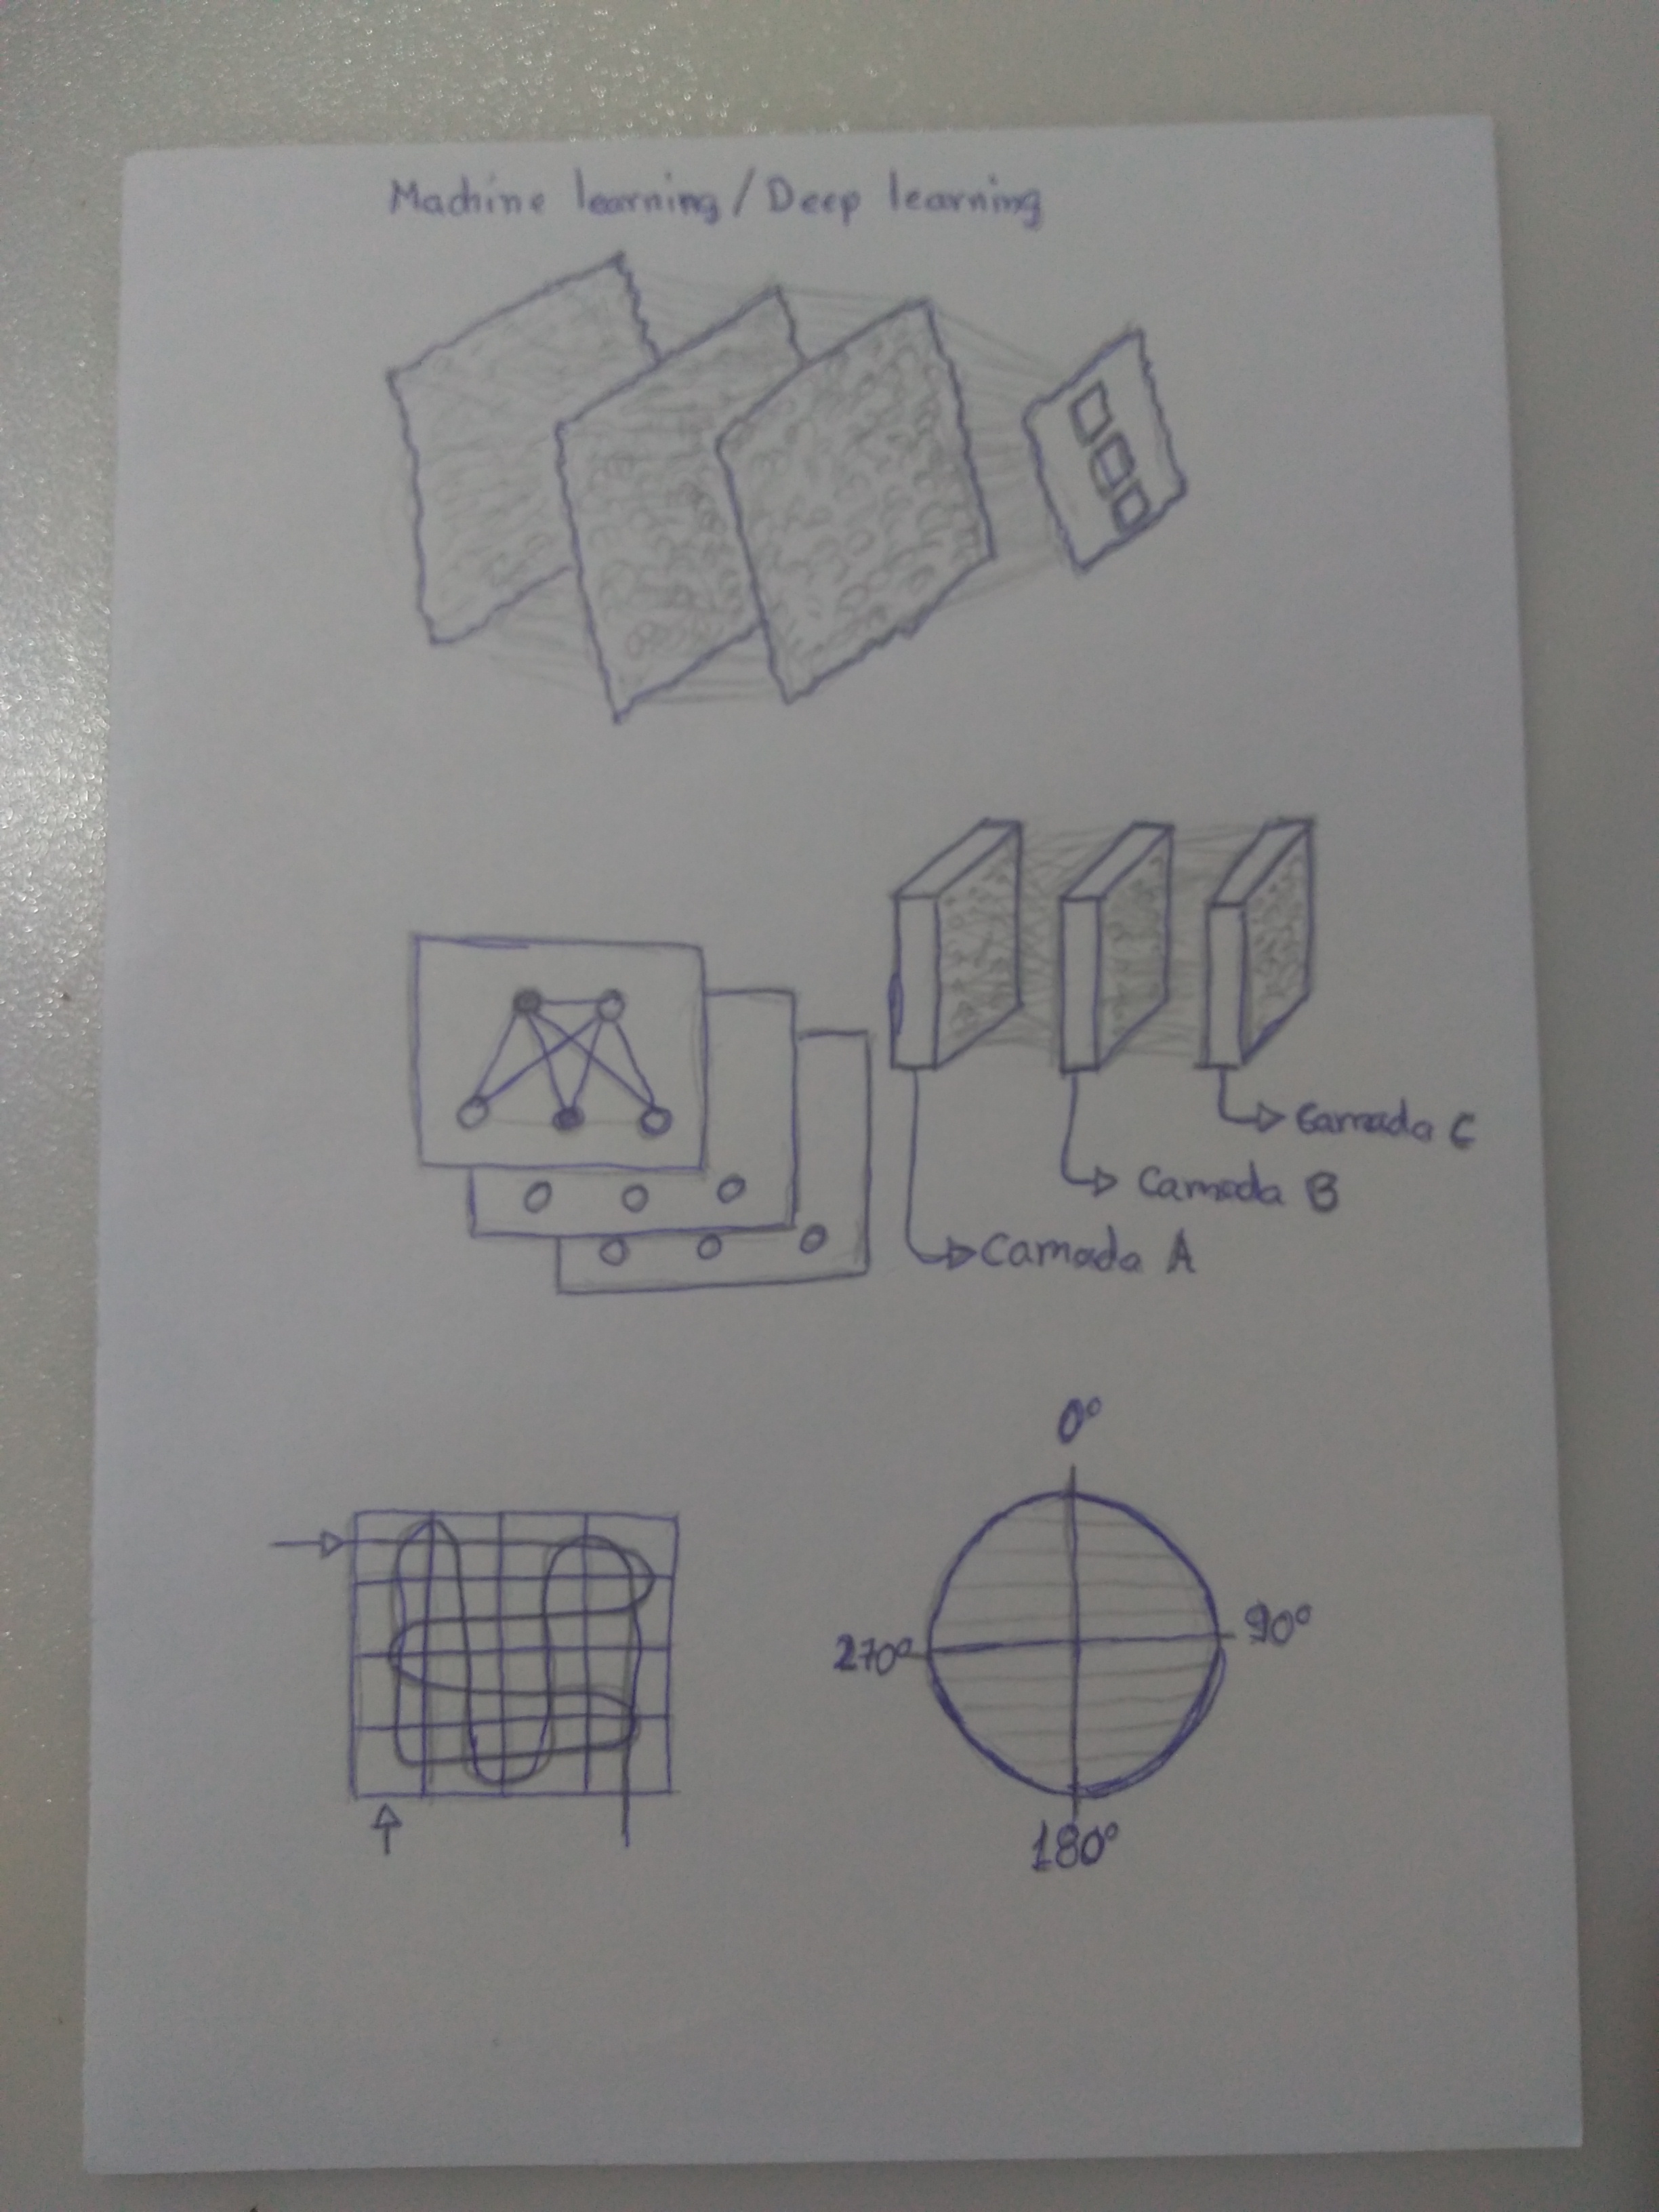 Machine learning / Deep learning
Camada C
Camada B
Camada A
0°
90°
270°
180°